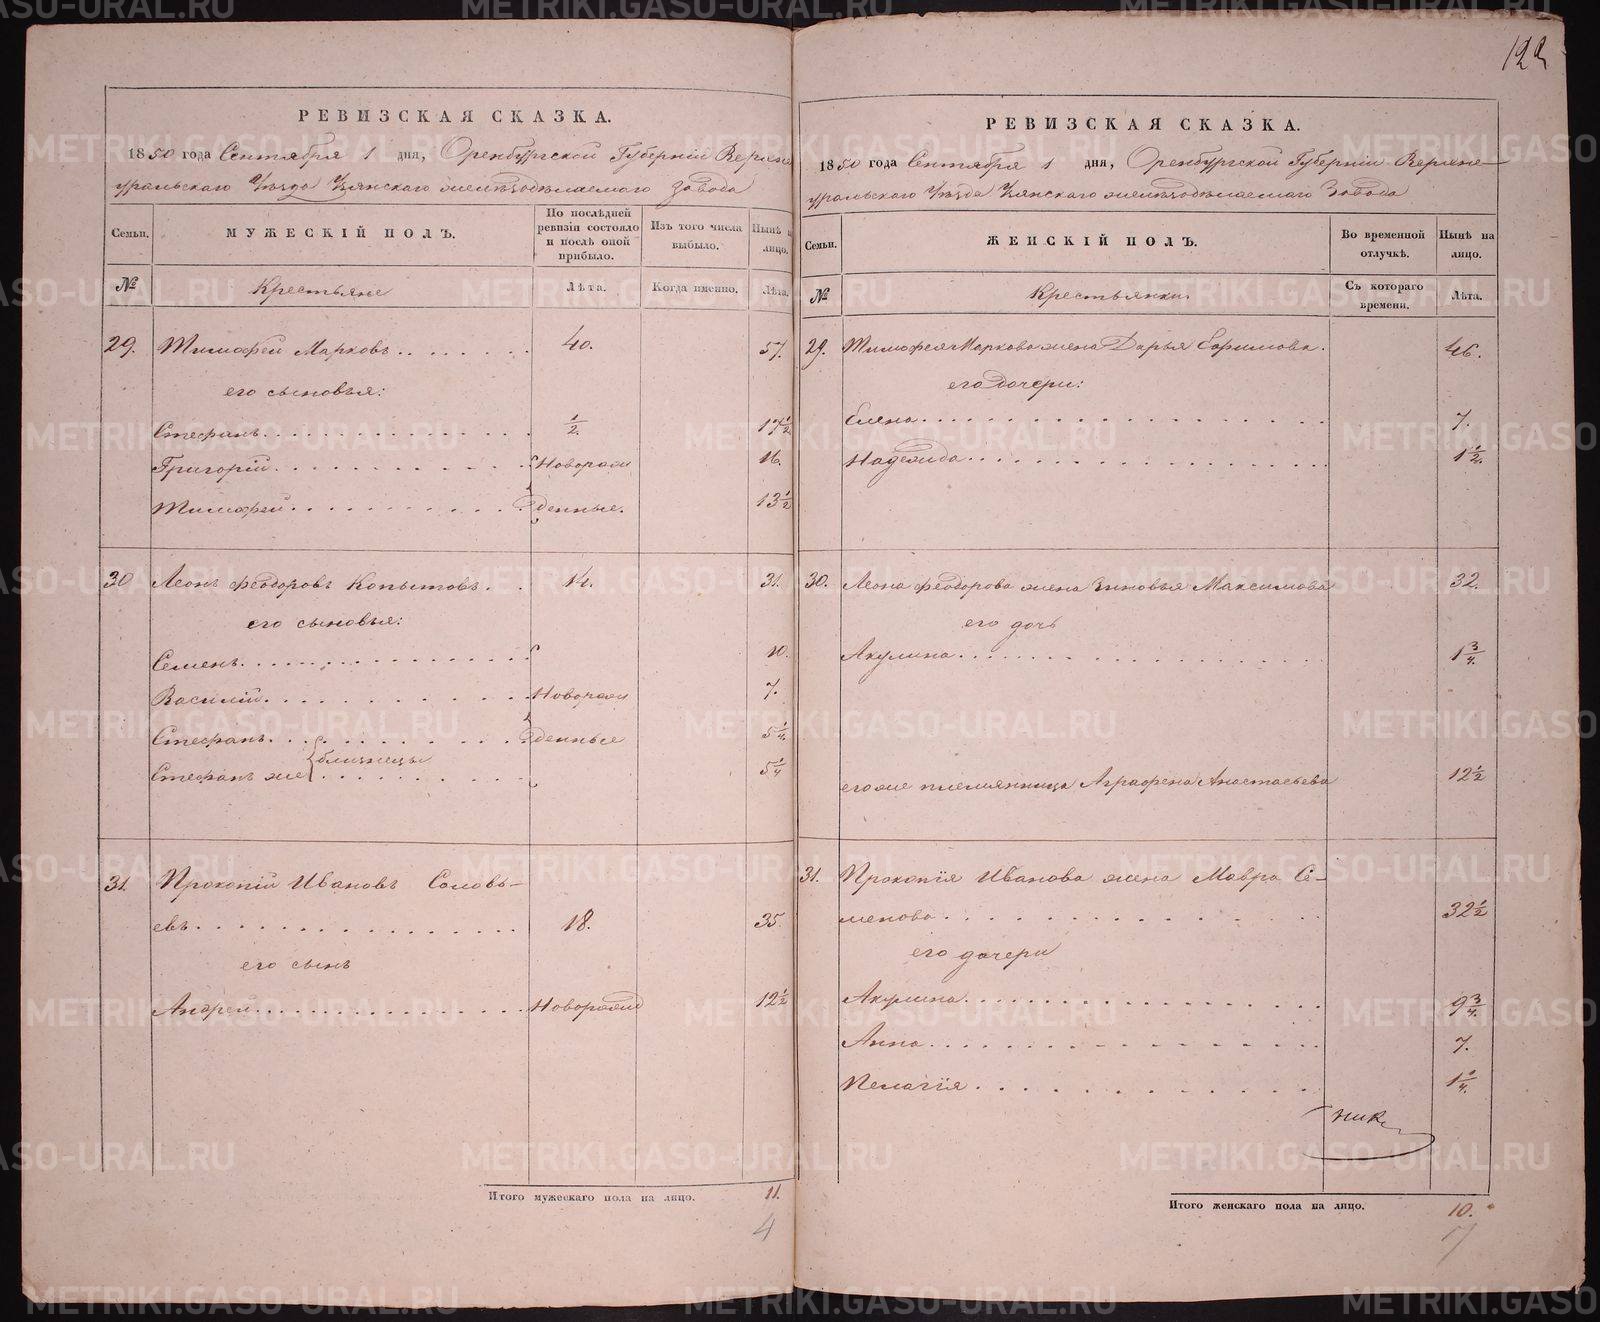 122
РЕВИЗСКАЯ СКАЗКА.
1850 года Сентября 1 дня, Оренбургской Губерніи Верхне
уральскаго Уѣзда Узянскаго желѣзодѣлаемаго завода
Семьи.
МУЖЕСКІЙ ПОЛЪ.
По послѣдней ревизіи состояло и послѣ оной прибыло.
Изъ того числа выбыло.
Нынѣ на лицо.
№
Крестьяне
Лѣта.
Когда именно.
Лѣта.
29. Тимофей Марковъ 40. 57.
его сыновья:
Стефанъ 1/2. 17 1/2
Григорій Новорож 16.
Тимофей денные. 13 1/2
30 Леонъ Феодоровъ Копытовъ 14. 31.
его сыновья:
Семенъ 10.
Василій Новорож 7.
Стефанъ денные 5 1/4.
Стефанъ же близнецы 5 1/4
31. Прокопій Ивановъ Соловь-
евъ 18. 35.
его сынъ
Андрей Новорожд 12 1/2
Итого мужескаго пола на лицо. 11.
4
РЕВИЗСКАЯ СКАЗКА.
1850 года Сентября 1 дня, Оренбургской Губерніи Верхне-
уральскаго Уѣзда Узянскаго желѣзодѣлаемаго Завода
Семьи.
ЖЕНСКІЙ ПОЛЪ.
Во временной отлучкѣ.
Нынѣ на лицо.
№
Крестьянки.
Съ котораго времени.
Лѣта.
29. Тимофея Маркова жена Дарья Ефимова. 46.
его дочери:
Елена 7.
Надежда 1 1/2.
30. Леона Феодорова жена Зиновья Максимова 32.
его дочь
Акулина 1 3/4.
его же племянница Аграфена Анастасьева 12 1/2
31. Прокопія Иванова жена Мавра Се-
менова 32 1/2
его дочери
Акулина 9 3/4.
Анна 7.
Пелагія 1 1/4.
Итого женскаго пола на лицо. 10.
7
METRIKI.GASO-URAL.RU